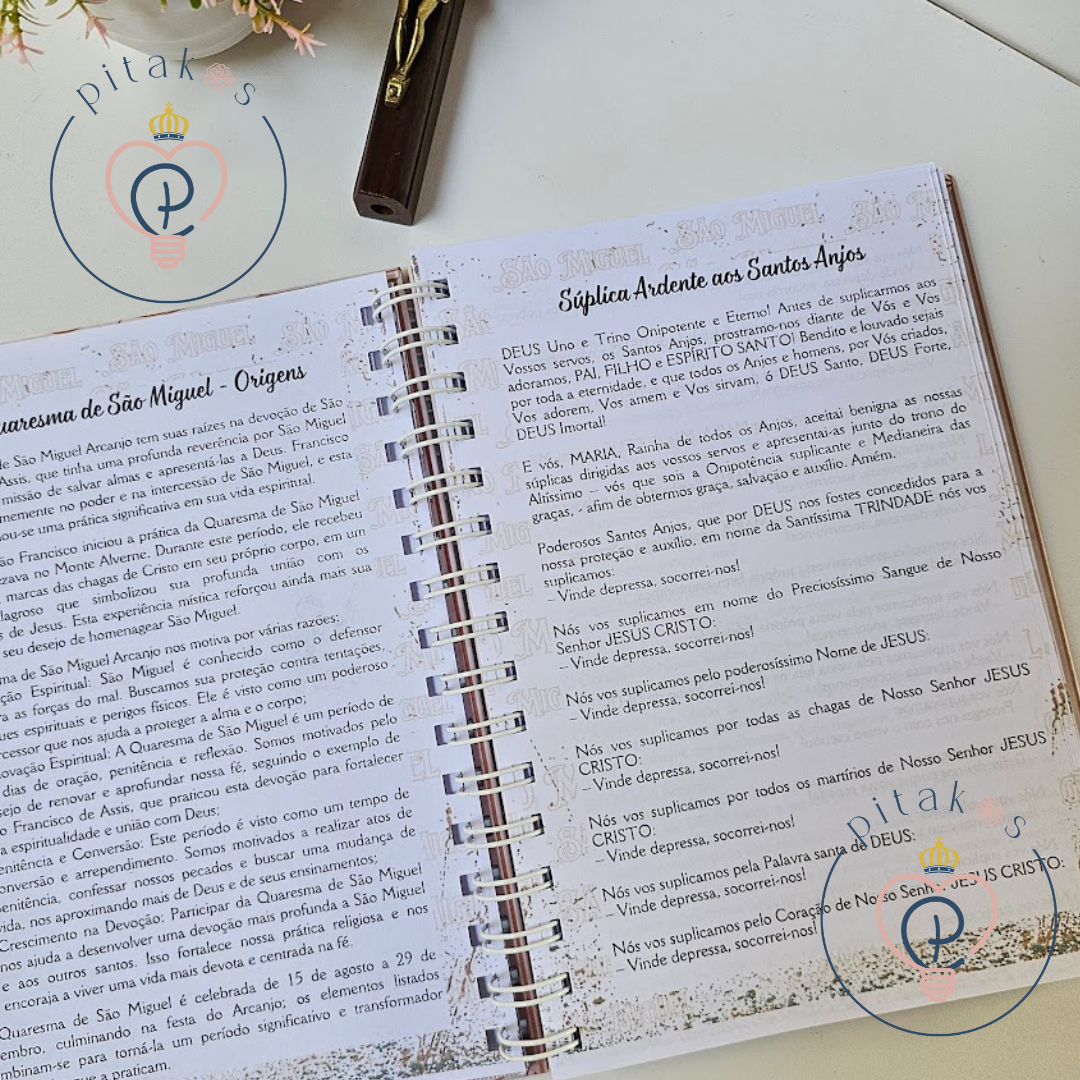 pitakos
P
Quaresma de São Miguel - Origens
de São Miguel Arcanjo tem suas raízes na devoção de São
Assis, que tinha uma profunda reverência por São Miguel
missão de salvar almas e apresentá-las a Deus. Francisco
no poder e na intercessão de São Miguel, e esta
uma prática significativa em sua vida espiritual.
São Francisco iniciou a prática da Quaresma de São Miguel
no Monte Alverne. Durante este período, ele recebeu
marcas das chagas de Cristo em seu próprio corpo, em um
que simbolizou sua profunda união com os
de Jesus. Esta experiência mística reforçou ainda mais sua
seu desejo de homenagear São Miguel.
de São Miguel Arcanjo nos motiva por várias razões:
Espiritual: São Miguel é conhecido como o defensor
as forças do mal. Buscamos sua proteção contra tentações,
espirituais e perigos físicos. Ele é visto como um poderoso
que nos ajuda a proteger a alma e o corpo;
Espiritual: A Quaresma de São Miguel é um período de
dias de oração, penitência e reflexão. Somos motivados pelo
de renovar e aprofundar nossa fé, seguindo o exemplo de
Francisco de Assis, que praticou esta devoção para fortalecer
a espiritualidade e união com Deus;
e Conversão: Este período é visto como um tempo de
conversão e arrependimento. Somos motivados a realizar atos de
penitência, confessar nossos pecados e buscar uma mudança de
vida, nos aproximando mais de Deus e de seus ensinamentos;
Crescimento na Devoção: Participar da Quaresma de São Miguel
nos ajuda a desenvolver uma devoção mais profunda a São Miguel
e aos outros santos. Isso fortalece nossa prática religiosa e nos
encoraja a viver uma vida mais devota e centrada na fé.
Quaresma de São Miguel é celebrada de 15 de agosto a 29 de
culminando na festa do Arcanjo; os elementos listados
para torná-la um período significativo e transformador
a praticam.
SÃO MIGUEL SÃO MIGUEL SÃO
Súplica Ardente aos Santos Anjos
DEUS Uno e Trino Onipotente e Eterno! Antes de suplicarmos aos
Vossos servos, os Santos Anjos, prostramo-nos diante de Vós e Vos
adoramos, PAI, FILHO e ESPÍRITO SANTO! Bendito e louvado sejais
por toda a eternidade, e que todos os Anjos e homens, por Vós criados,
Vos adorem, Vos amem e Vos sirvam, ó DEUS Santo, DEUS Forte,
DEUS Imortal!
E vós, MARIA, Rainha de todos os Anjos, aceitai benigna as nossas
súplicas dirigidas aos vossos servos e apresentai-as junto do trono do
Altíssimo – vós que sois a Onipotência suplicante e Medianeira das
graças, - afim de obtermos graça, salvação e auxílio. Amém.
Poderosos Santos Anjos, que por DEUS nos fostes concedidos para a
nossa proteção e auxílio, em nome da Santíssima TRINDADE nós vos
suplicamos:
– Vinde depressa, socorrei-nos!
Nós vos suplicamos em nome do Preciosíssimo Sangue de Nosso
Senhor JESUS CRISTO:
– Vinde depressa, socorrei-nos!
Nós vos suplicamos pelo poderosíssimo Nome de JESUS:
– Vinde depressa, socorrei-nos!
Nós vos suplicamos por todas as chagas de Nosso Senhor JESUS
CRISTO:
– Vinde depressa, socorrei-nos!
Nós vos suplicamos por todos os martírios de Nosso Senhor JESUS
CRISTO:
– Vinde depressa, socorrei-nos!
Nós vos suplicamos pela Palavra santa de DEUS:
– Vinde depressa, socorrei-nos!
Nós vos suplicamos pelo Coração de Nosso Senhor JESUS CRISTO:
– Vinde depressa, socorrei-nos!
pitakos
P